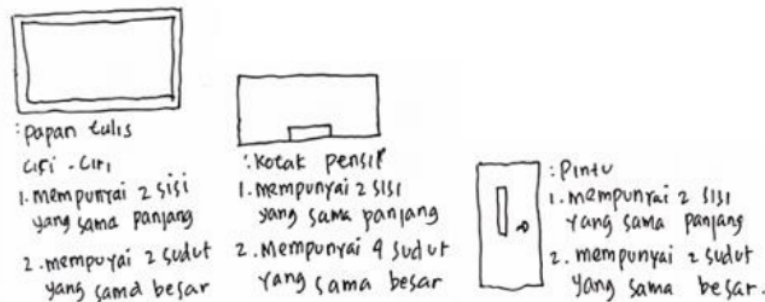 : Papan tulis
Ciri - Ciri
1. mempunyai 2 sisi
yang sama panjang
2. mempuyai 2 sudut
yang sama besar
: Kotak pensil
1. Mempunyai 2 sisi
yang sama panjang
2. Mempunyai 4 sudut
yang sama besar
: Pintu
1. mempunyai 2 sisi
yang sama panjang
2. mempunyai 2 sudut
yang sama besar.